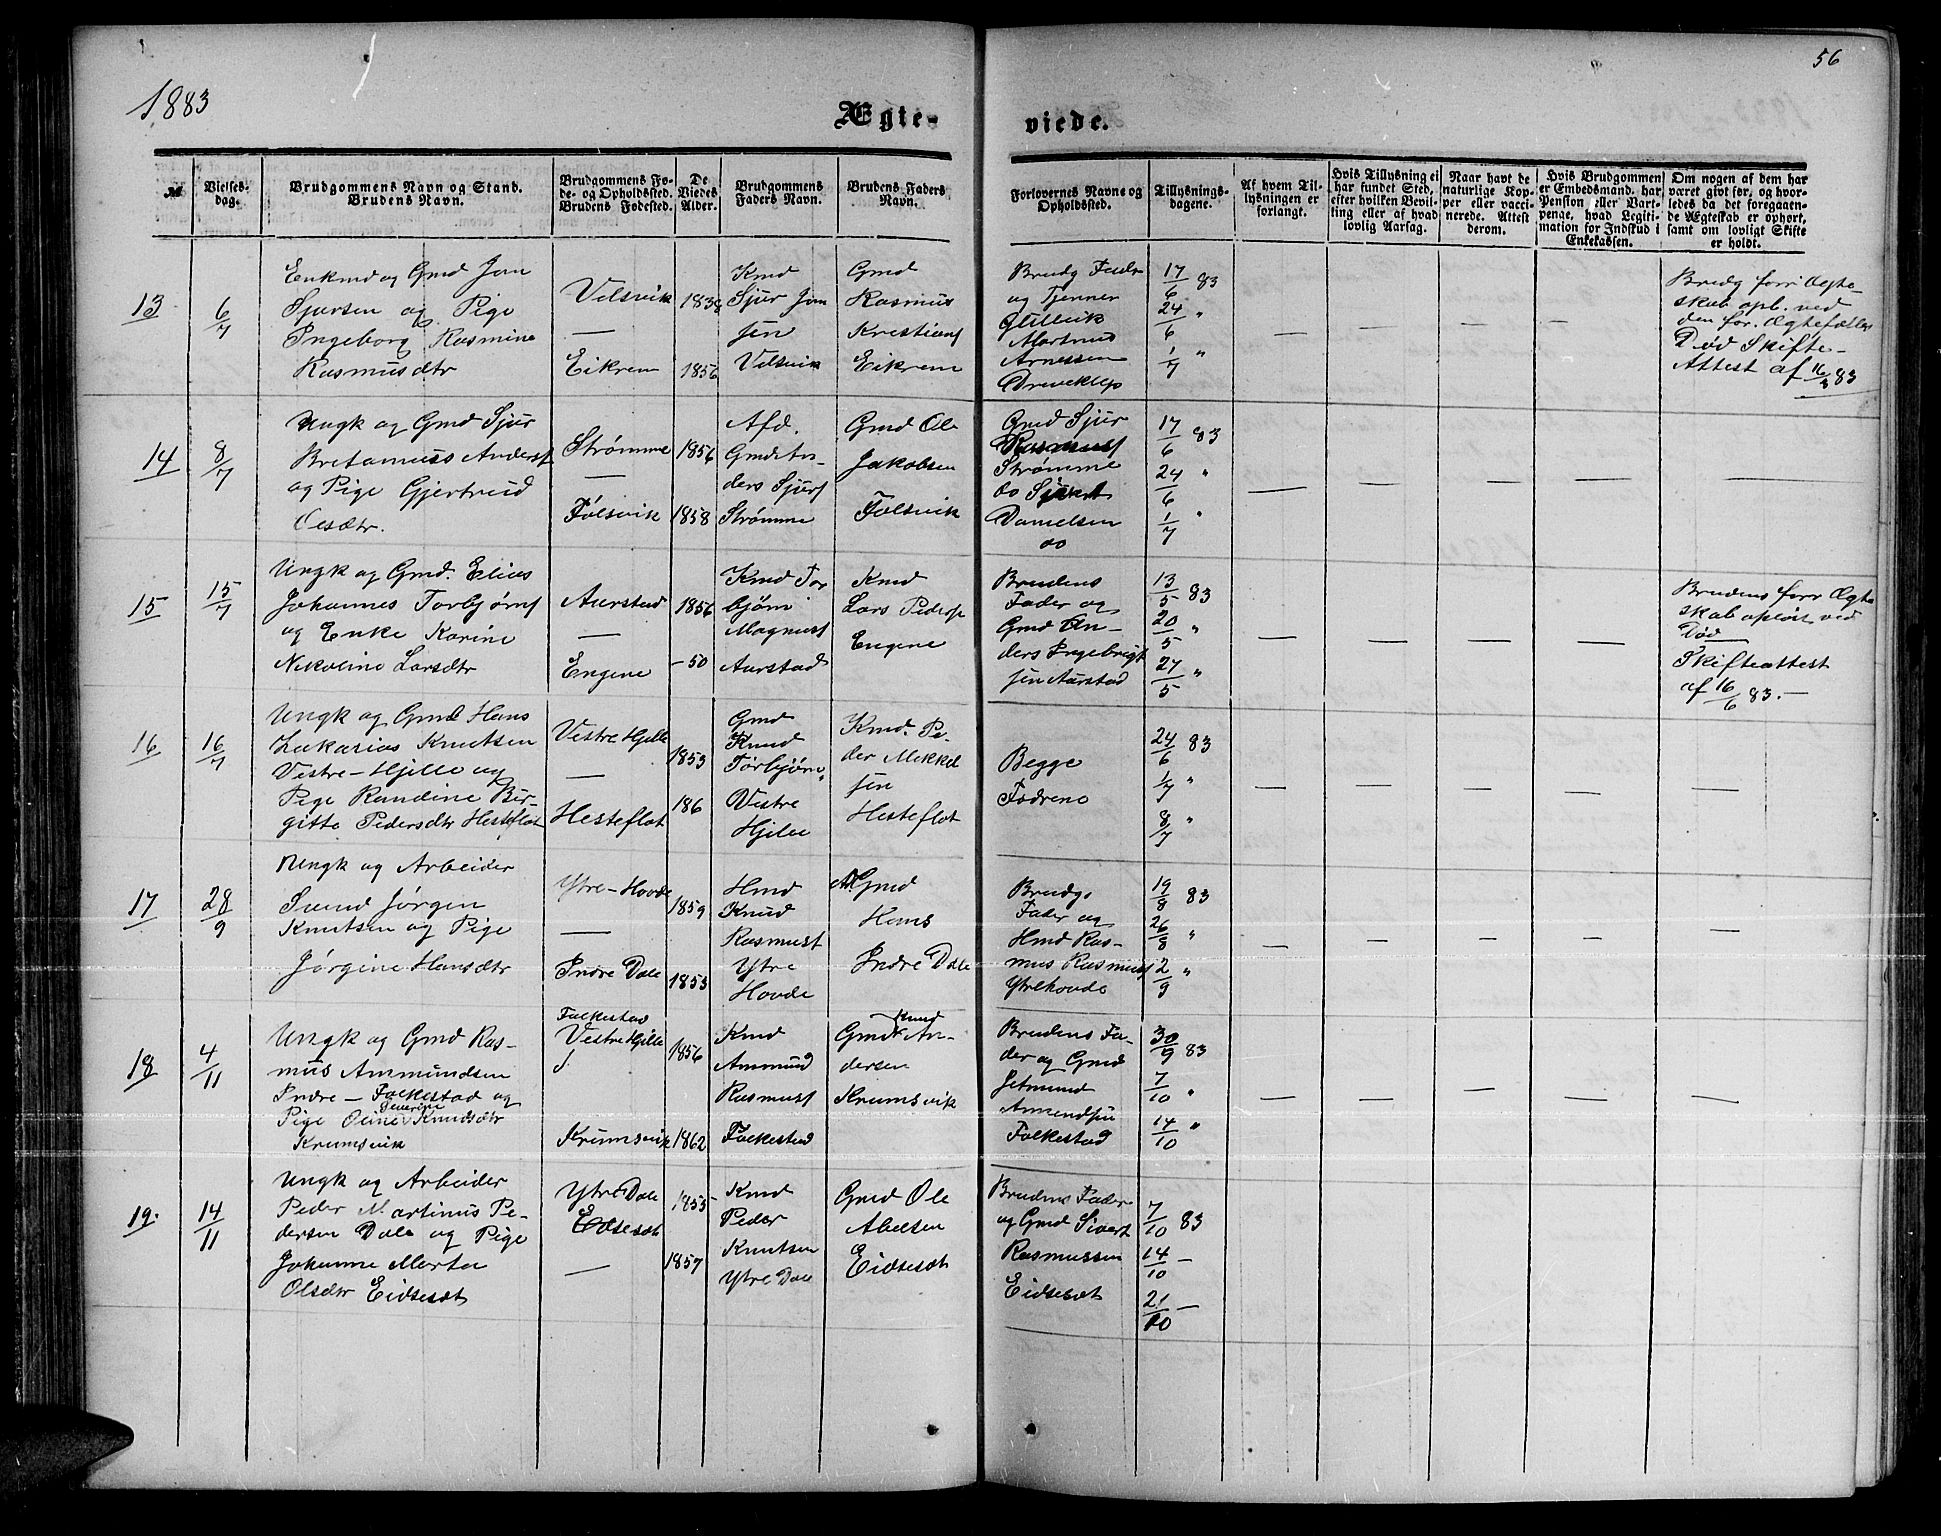 56
1883
Ægte-
viede.
№
Vielses-
dag.
Brudgommens Navn og Stand.
Brudens Navn.
Brudgommens Fø-
de- og Opholdssted.
Brudens Fødested.
De
Viedes
Alder.
Brudgommens
Faders Navn.
Brudens Faders
Navn.
Forlovernes Navne og
Opholdssted.
Tillysnings-
dagene.
Af hvem Til-
lysningen er
forlangt.
Hvis Tillysning ei
har fundet Sted,
efter hvilken Bevil-
ling eller af hvad
lovlig Aarsag.
Naar havt de
naturlige Kop-
per eller vacci-
nerede. Attest
derom.
Hvis Brudgommen
er Embedsmand, har
Pension eller Vart-
penge, hvad Legiti-
mation for Indskud i
Enkekassen.
Om nogen af dem har
været givt før, og hvor-
ledes da det foregaaen-
de Ægteskab er ophørt,
samt om lovligt Skifte
er holdt.
13
6/7
Enkmd og Gmd Jon
Sjursen og Pige
Ingeborg Rasmine
Rasmusdtr
Velsvik
—
Eikrem
1838
1856
Kmd
Sjur Jon
sen
Velsvik
Gmd
Rasmus
Kristians
Eikrem
Brudg Fader
og Tjener
Martnus
Arnessen
Dreveklep
17/6 83
24/6 "
1/7 "
— — — —
Brudg forr Ægte-
skab opl. ved
den for. Ægtefælles
Død Skifte-
Attest af 16/3 83
14
8/7
Ungk og Gmd Sjur
Bretanius Anders
og Pige Gjertrud
Olesdtr.
Strømme
—
Følsvik
1856
1858
Afd.
Gmd An-
ders Sjurs
Strømme
Gmd Ole
Jakobsen
Følsvik
Gmd Sjur
Rasmuss
Strømme
do Sjurt
Danielsen
do
17/6 83
24/6 "
1/7 "
— — — — —
15
15/7
Ungk og Gmd. Elias
Johannes Torbjørns
og Enke Karine
Nikoline Larsdtr
Aarstad
—
Engene
1856
- 50
Kmd Tor
bjørn
Magnuss
Aarstad
Kmd
Lars Peders
Engene
Brudens
Fader og
Gmd An-
ders Ingebrigt
sen Aarstad
13/5 83
20/5 "
27/5 "
— — — —
Brudens forr Ægte
skab opløst ved
Død
Skifteattest
af 16/6 83.—
16
16/7
Ungk og Gmd Hans
Zakarias Knutsen
Vestre-Hjelle og
Pige Randine Bir-
gitte Pedersdtr Hesteflot
Vestre Hjelle
—
Hesteflot
1853
186
Gmd
Knud
Torbjørn"
Vestre
Hjelle
Kmd. Pe-
der Mikkel
sen
Hesteflot
Begge
Fædrene
24/6 83
1/7 "
8/7 "
— — — — —
17
28/9
Ungk og Arbeider
Svend Jørgen
Knutsen og Pige
Jørgine Hansdtr
Ytre-Hovde
—
Indre Dale
1859
1853
Hmd
Knud
Rasmuss
Ytre
Hovde
Gmd
Hans
Indre Dale
Brudgs
Fader og
Hmd Ras-
mus Rasmuss
Ytrehovde
19/8 83
26/8 "
2/9 "
— — — — —
18
4/11
Ungk og Gmd Ras-
mus Ammundsen
Indre-Folkestad og
Severine
Pige Oline Knudsdtr
Krumsvik
Folkestad
Vestre Hjelle
Krumsvik
1856
1862
Kmd
Ammund
Rasmuss
Folkestad
Knud
Gmd An-
dersen
Krumsvik
Brudens Fa-
der og Gmd
Jetmund
Ammendsen
Folkestad
30/9 83
7/10 "
14/10 "
— — — — —
19.
14/11
Ungk og Arbeider
Peder Martinus Pe-
dersen Dale og Pige
Johanne Marta
Olsdtr Eidseset
Ytre Dale
Eidseset
—
1855
1857
Kmd
Peder
Knutsen
Ytre Dale
Gmd Ole
Abelsen
Eidseset
Brudens Fader
og Gmd Sivert
Rasmussen
Eidseset
7/10 83
14/10 —
21/10 —